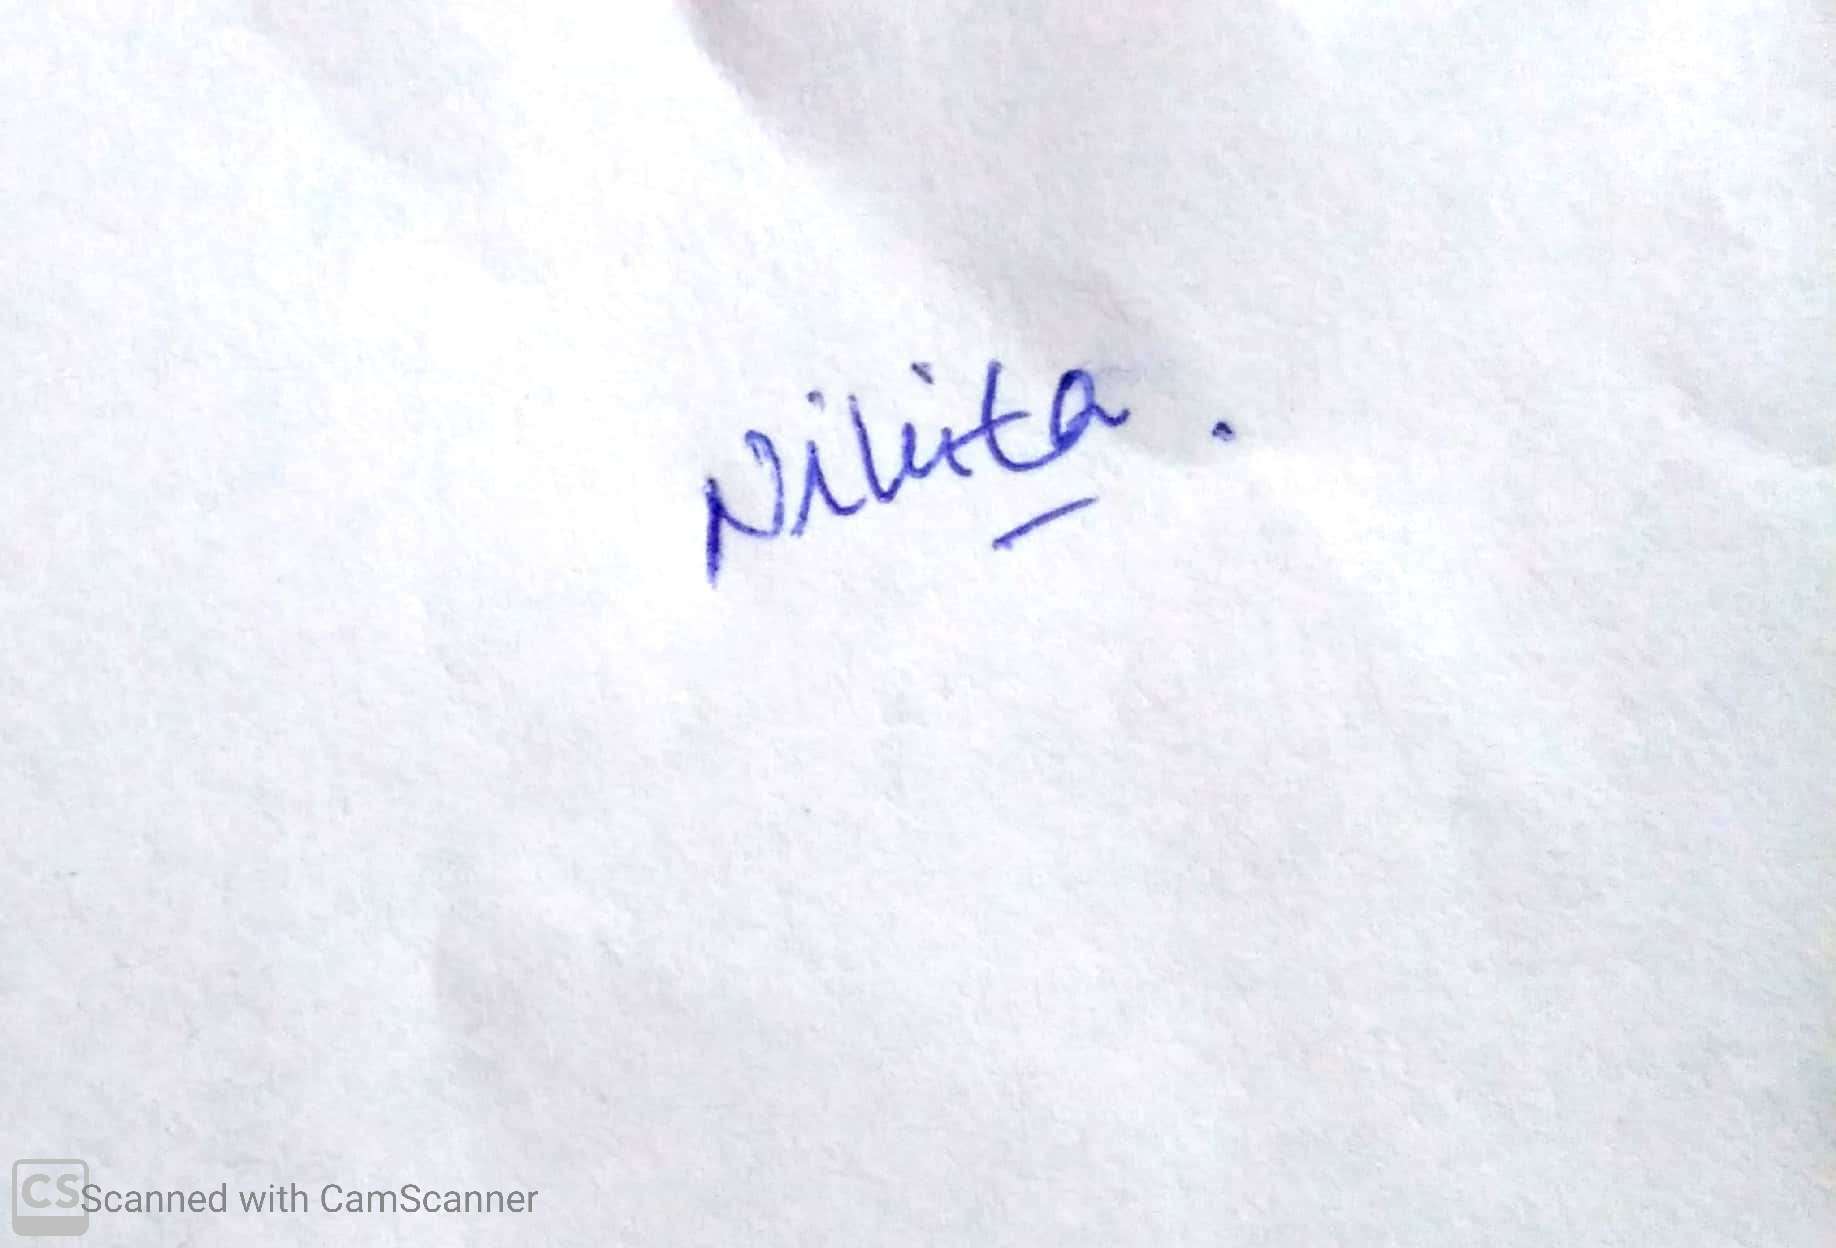 Nikita .
CS Scanned with CamScanner